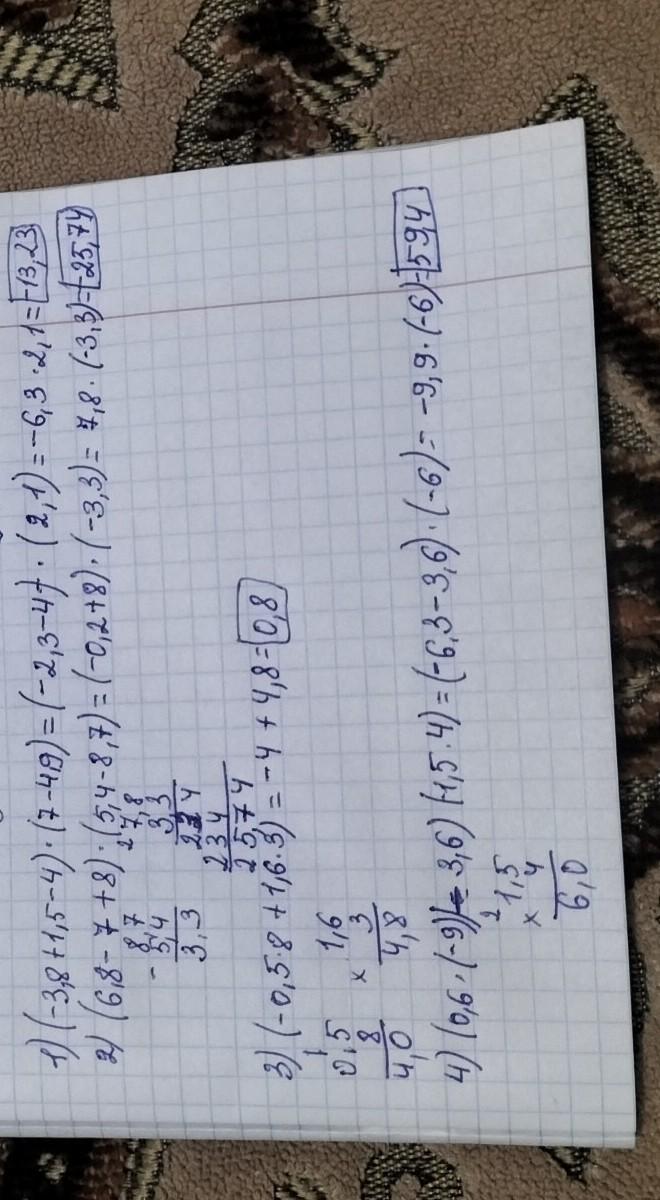 1) (-3,8+1,5-4)·(7-4,9)=(-2,3-4)·(2,1)=-6,3·2,1=-13,23
2) (6,8-7+8)·(5,4-8,7)=(-0,2+8)·(-3,3)=7,8·(-3,3)=-25,74
- 8,7
5,4
3,3
2
7,8
3,3
234
234
25,74
3) (-0,5·8+1,6·3)=-4+4,8=0,8
1
0,5
8
4,0
× 1,6
3
4,8
4) (0,6·(-9)-3,6)(-1,5·4)=(-6,3-3,6)·(-6)=-9,9·(-6)=59,4
2
× 1,5
4
6,0